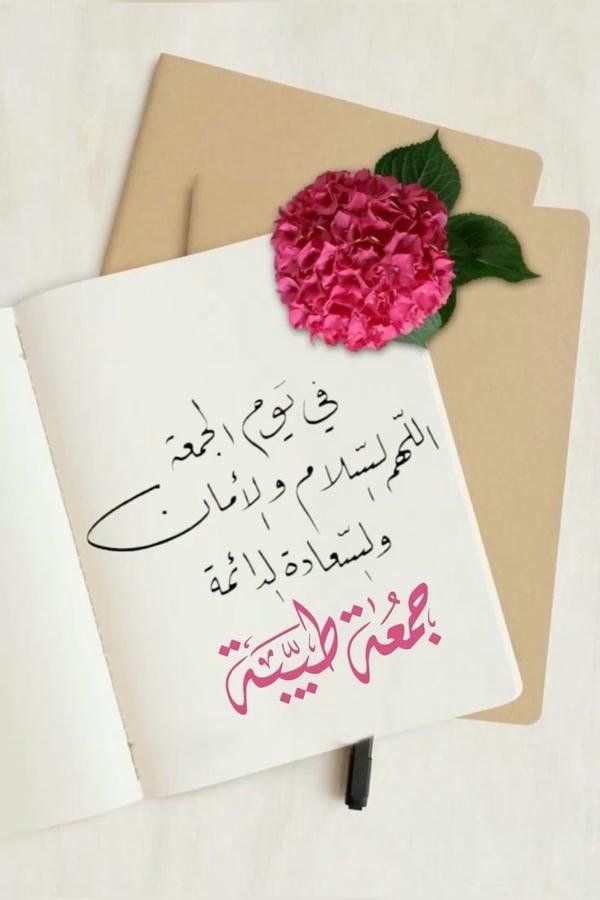 في يَوم الجمعة
اللّهم السّلام والأمان
والسّعادة الدائمة
جمعُة طيّبة